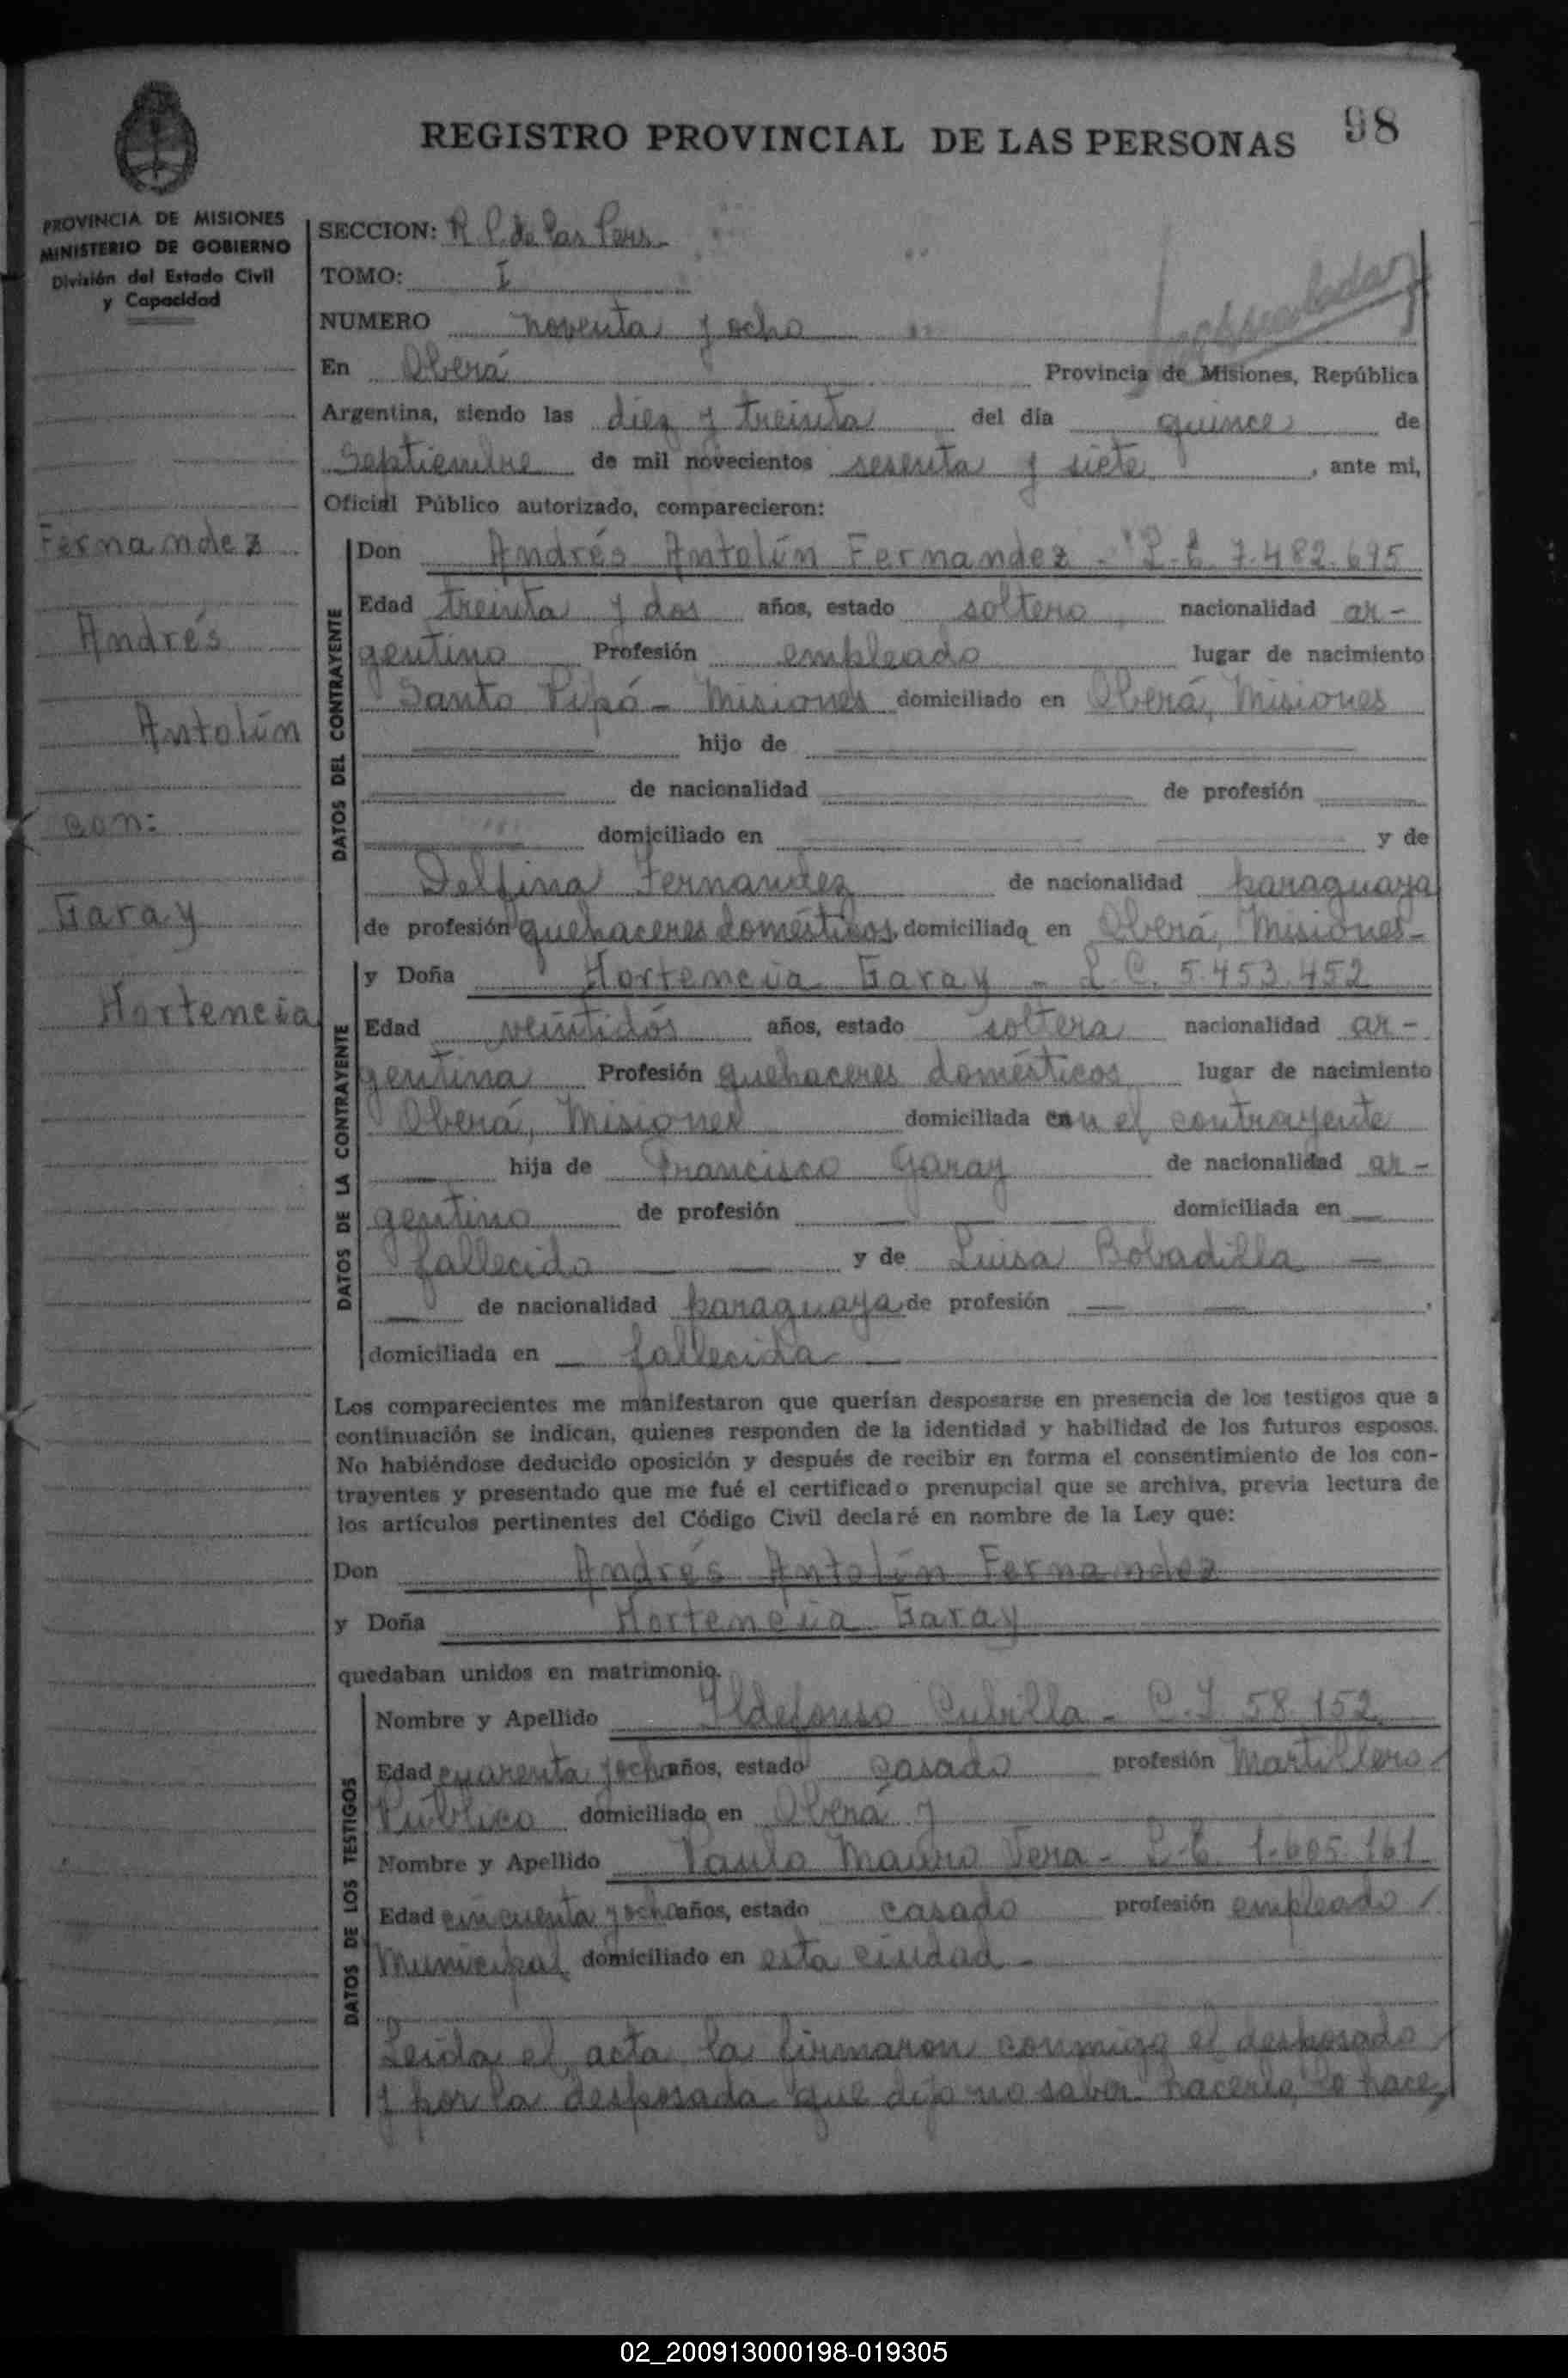 98
REGISTRO PROVINCIAL DE LAS PERSONAS
PROVINCIA DE MISIONES
MINISTERIO DE GOBIERNO
División del Estado Civil
y Capacidad
Fernandez
Andrés
Antolín
con:
Garay
Hortencia
SECCION: R. P. de las Pers.
TOMO: I
NUMERO noventa y ocho
En Oberá Provincia de Misiones, República
Argentina, siendo las diez y treinta del día quince de
Septiembre de mil novecientos sesenta y siete, ante mi,
Oficial Público autorizado, comparecieron:
DATOS DEL CONTRAYENTE
Don Andrés Antolín Fernandez - L.E. 7.482.695
Edad treinta y dos años, estado soltero nacionalidad ar-
gentino Profesión empleado lugar de nacimiento
Santo Pipó - Misiones domiciliado en Oberá, Misiones
hijo de
de nacionalidad de profesión
domiciliado en y de
Delfina Fernandez de nacionalidad paraguaya
de profesión quehaceres domésticos, domiciliada en Oberá, Misiones-
DATOS DE LA CONTRAYENTE
y Doña Hortencia Garay - L.C. 5.453.452
Edad veintidós años, estado soltera nacionalidad ar-
gentina Profesión quehaceres domésticos lugar de nacimiento
Oberá, Misiones domiciliada con el contrayente
hija de Francisco Garay de nacionalidad ar-
gentino de profesión domiciliada en
fallecido y de Luisa Bobadilla
de nacionalidad paraguaya de profesión
domiciliada en fallecida
Los comparecientes me manifestaron que querían desposarse en presencia de los testigos que a
continuación se indican, quienes responden de la identidad y habilidad de los futuros esposos.
No habiéndose deducido oposición y después de recibir en forma el consentimiento de los con-
trayentes y presentado que me fué el certificado prenupcial que se archiva, previa lectura de
los artículos pertinentes del Código Civil declaré en nombre de la Ley que:
Don Andrés Antolín Fernandez
y Doña Hortencia Garay
quedaban unidos en matrimonio.
DATOS DE LOS TESTIGOS
Nombre y Apellido Ildefonso Cubilla - C.I 58.152
Edad cuarenta y ocho años, estado casado profesión Martillero
Público domiciliado en Oberá y
Nombre y Apellido Paulo Mauro Vera - L.E. 1.605.161
Edad cincuenta y ocho años, estado casado profesión empleado
Municipal domiciliado en esta ciudad -
Leida el acta la firmaron conmigo el desposado
y por la desposada que dijo no saber hacerlo, lo hace,
02_200913000198-019305